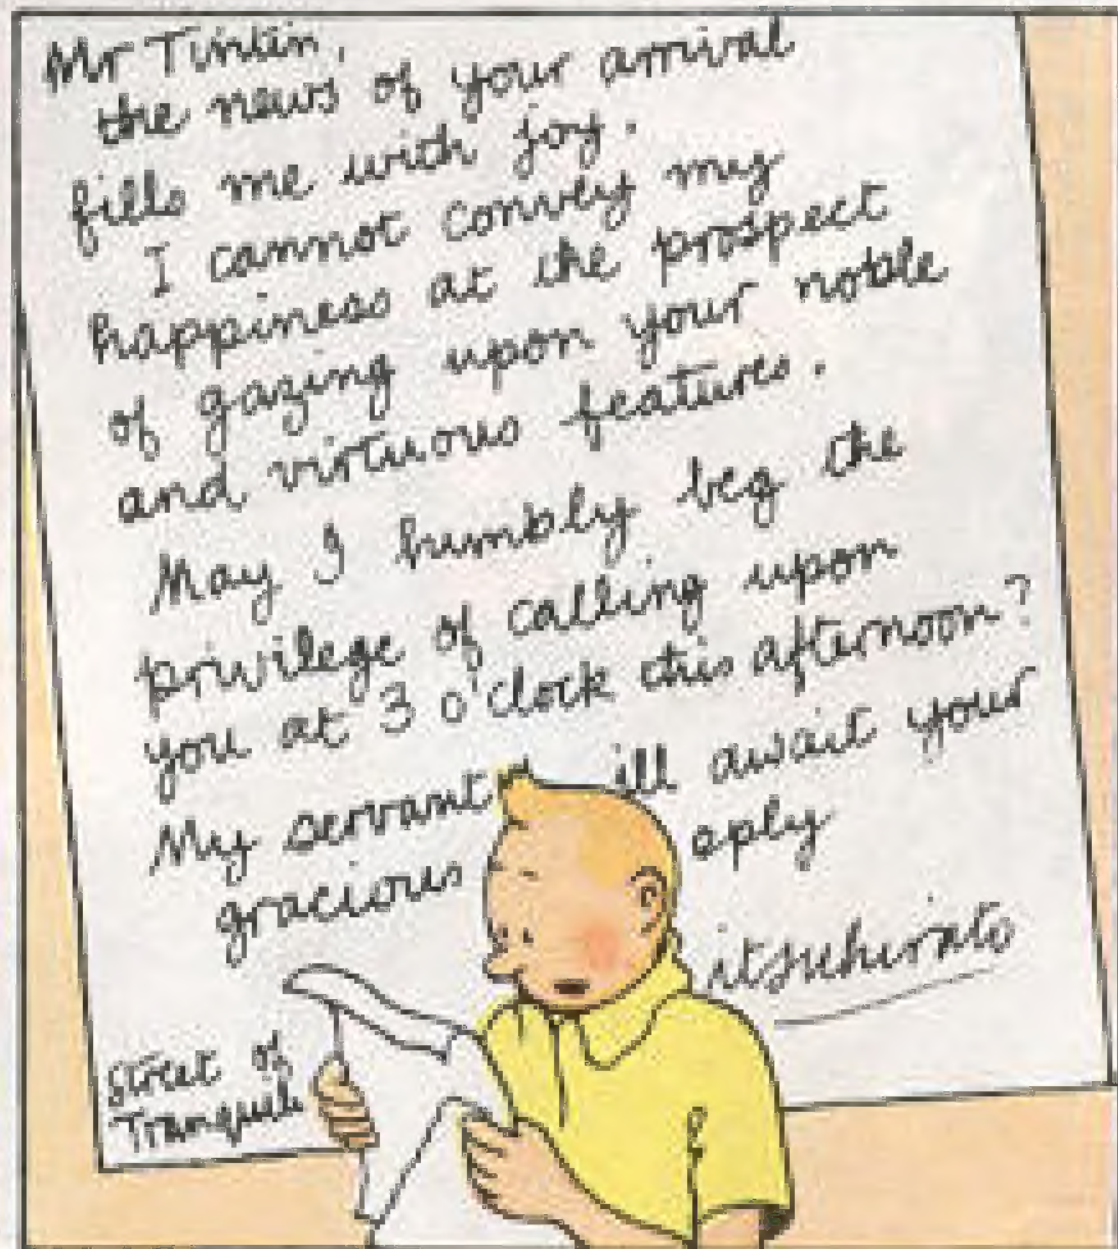 Mr Tintin,
the news of your arrival
fills me with joy.
I cannot convey my
happiness at the prospect
of gazing upon your noble
and virtuous features.
May I humbly beg the
privilege of calling upon
you at 3 o'clock this afternoon?
My servant ill await your
gracious eply
itsuhirato
Street of
Tranquili